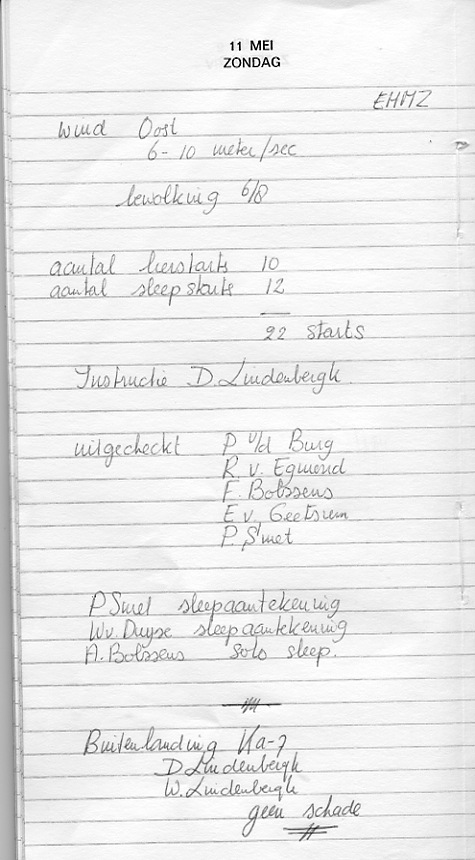 11 MEI
ZONDAG
EHMZ
wind Oost
6-10 meter/sec
bewolking 6/8
aantal lierstarts 10
aantal sleepstarts 12
22 starts
Instructie D. Lindenbergh.
uitgecheckt P v/d Burg
R. v. Egmond
F. Bolssens
E v. Geetsrem
P. Smet
P Smet sleepaantekening
W.v. Duyse sleepaantekening
A. Bolssens solo sleep.
Buitenlanding Ka-7
D Lindenbergh
W. Lindenbergh
geen schade